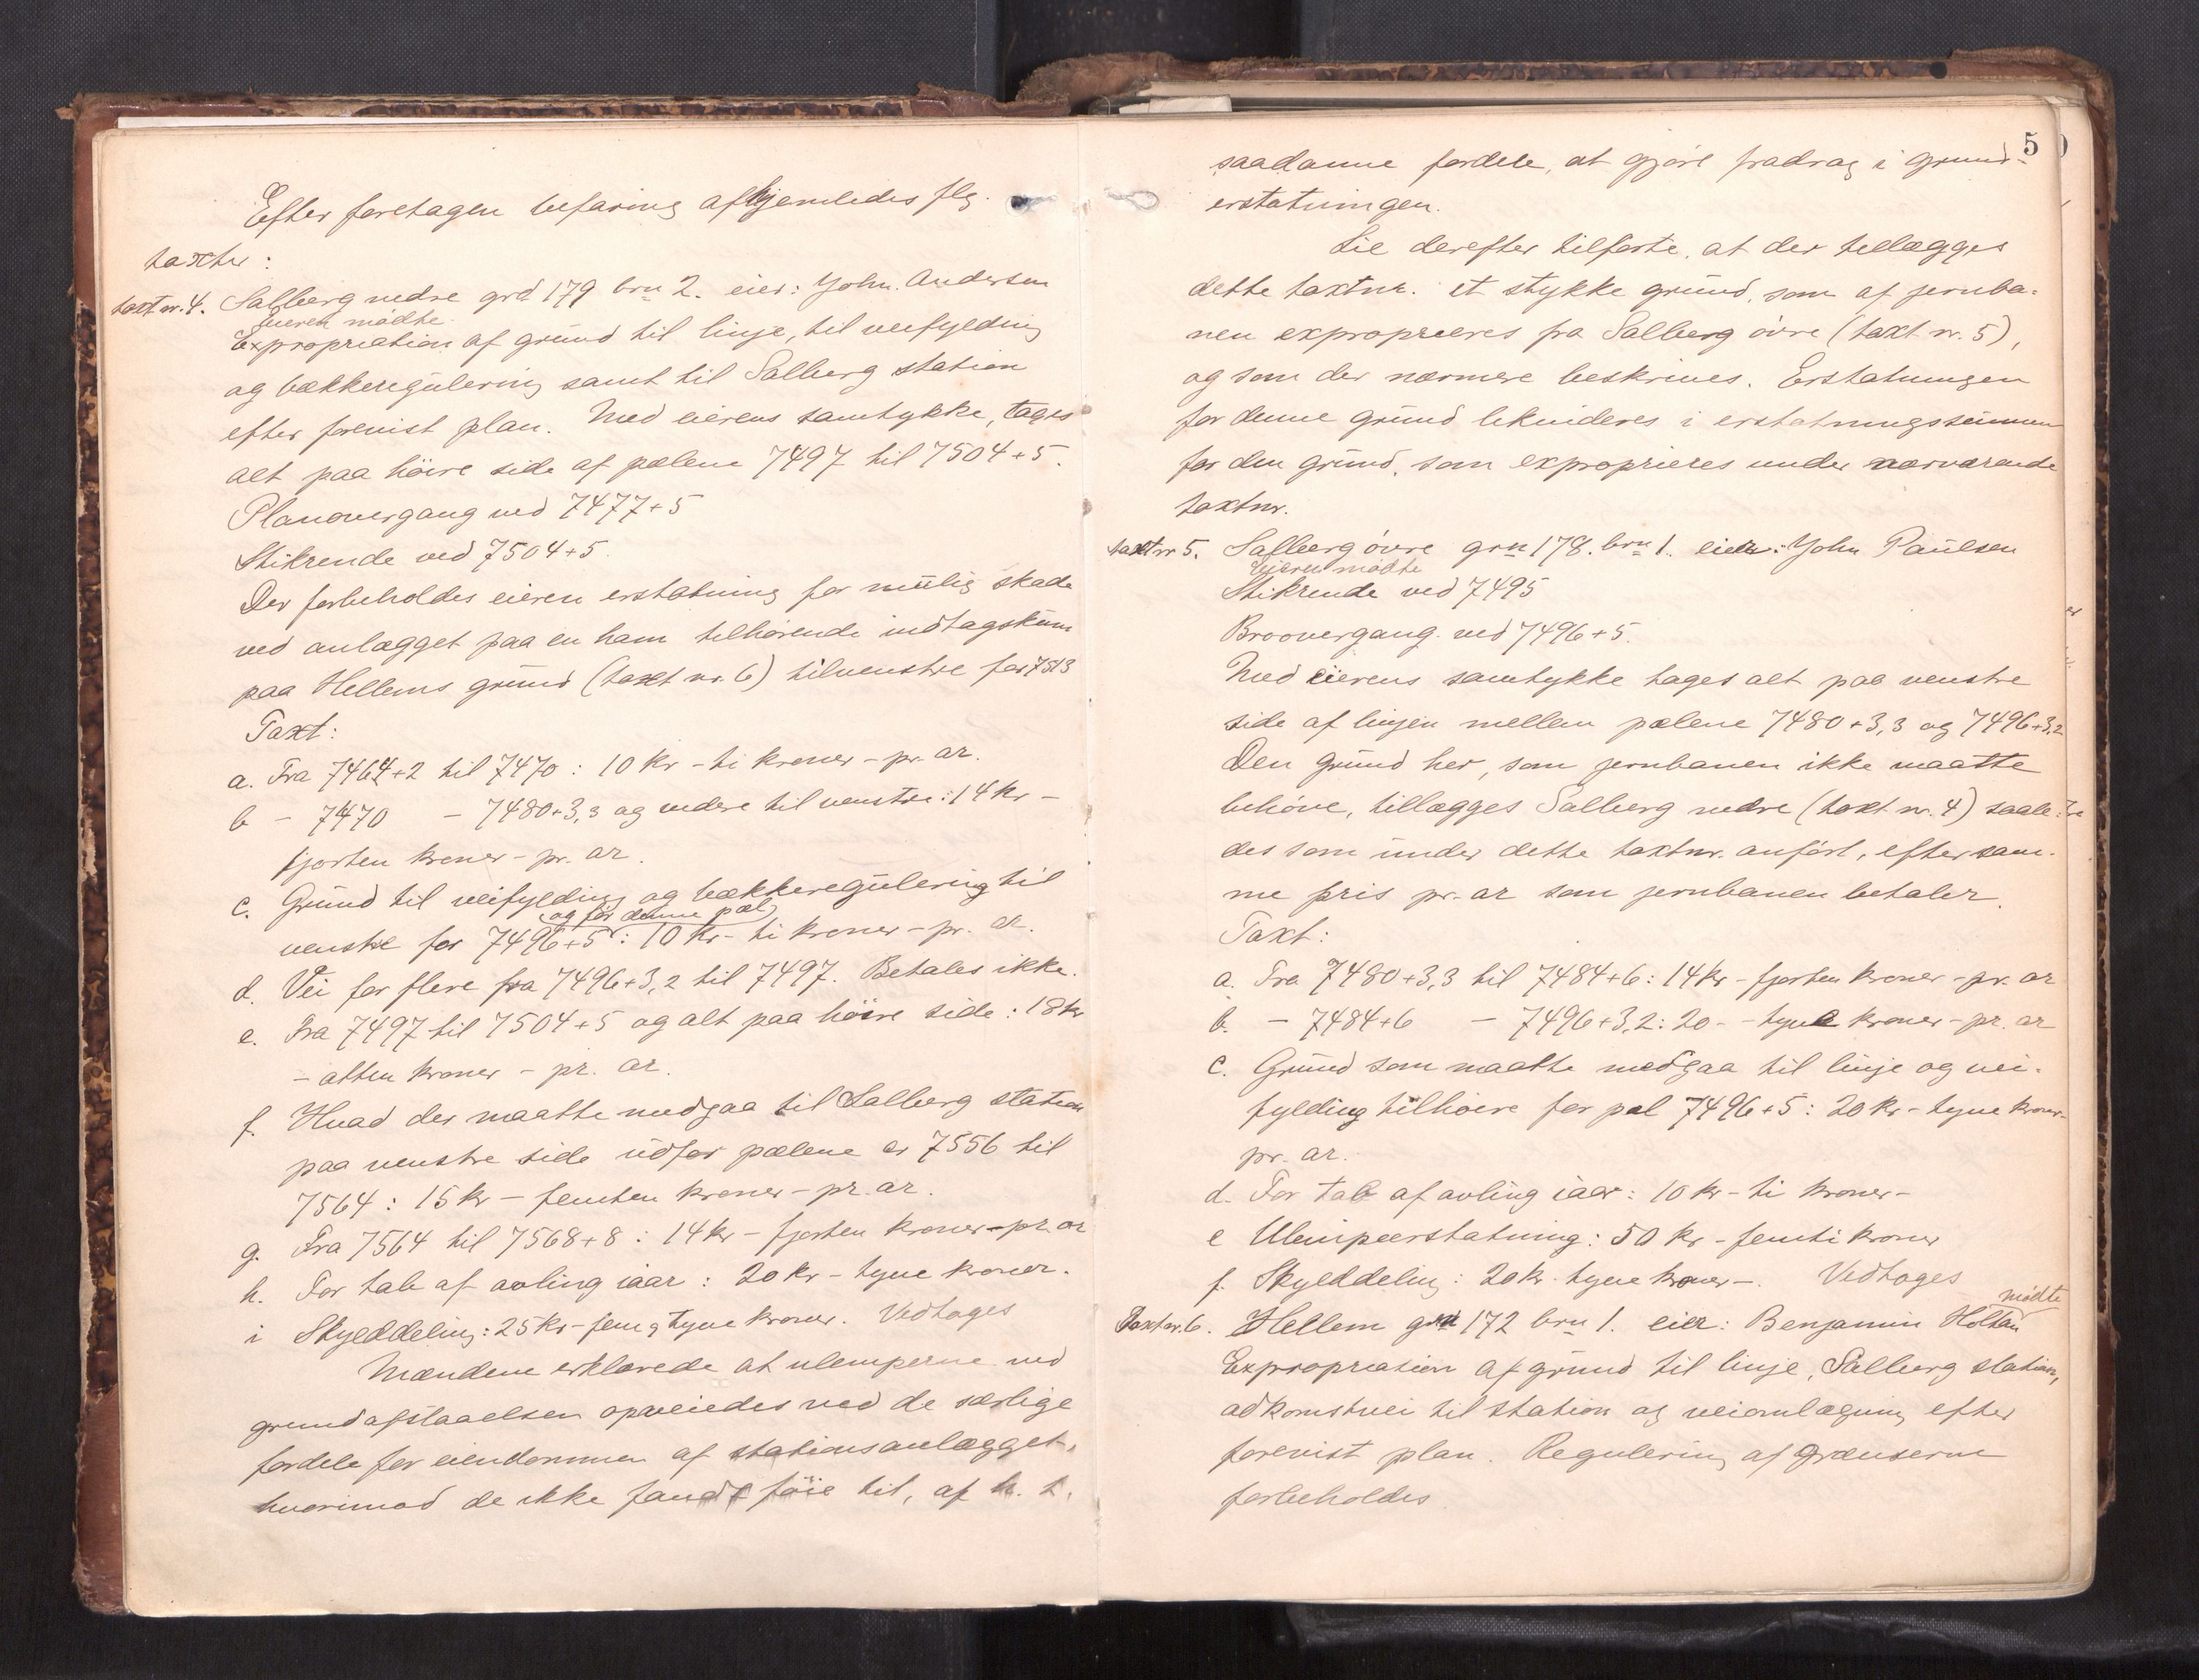 Efter foretagen befaring afhjemledes flg.
taxter:
taxt nr. 4. Salberg nedre grd 179 brn 2. eier: John. Andersen
Eieren mødte
Expropriation af grund til linje, til veifylding
og bækkeregulering samt til Salberg station
efter forevist plan. Med eierens samtykke, tages
alt paa höire side af pælene 7497 til 7504+5.
Planovergang ved 7477+5
Stikrende ved 7504+5.
Der forbeholdes eieren erstatning for mulig skade
ved anlægget paa en ham tilhörende indtagskum
paa Hellems grund (taxt nr. 6) tilvenstre for 7513
Taxt:
a. Fra 7464+2 til 7470: 10 kr - ti kroner - pr. ar.
b - 7470 - 7480+3,3 og videre til venstre: 14 kr -
fjorten kroner - pr. ar.
c. Grund til veifylding og bækkeregulering til
(og før denne pæl)
venstre for 7496+5: 10 kr - ti kroner - pr. ar.
d. Vei for flere fra 7496+3,2 til 7497. Betales ikke.
e. Fra 7497 til 7504+5 og alt paa höire side: 18 kr
- atten kroner - pr. ar.
f. Hvad der maatte medgaa til Salberg station
paa venstre side udfor pælene er 7556 til
7564: 15 kr - femten kroner - pr. ar.
g. Fra 7564 til 7568+8: 14 kr - fjorten kroner - pr. ar
h. For tab af avling iaar: 20 kr - tyve kroner.
i Skylddeling: 25 kr - fem og tyve kroner. Vedtoges
Mændene erklærede at ulemperne ved
grundafstaaelsen opveiedes ved de særlige
fordele for eiendommen af stationsanlægget,
hvorimod de ikke fandt föie til, af h. t.
5
saadanne fordele, at gjøre fradrag i grund-
erstatningen.
Lie derefter tilførte, at der tillægges
dette taxtnr. et stykke grund, som af jernba-
nen exproprieres fra Salberg övre (taxt nr. 5),
og som der nærmere beskrives. Erstatningen
for denne grund likvideres i erstatningssummen
for den grund, som exproprieres under nærværende
taxtnr.
taxt nr 5. Salberg övre grn 178. brn 1. eier: John Paulsen
Eieren mødte
Stikrende ved 7495
Broovergang ved 7496+5.
Med eierens samtykke tages alt paa venstre
side af linjen mellem pælene 7480+3,3 og 7496+3,2
Den grund her, som jernbanen ikke maatte
behöve, tillægges Salberg nedre (taxt nr. 4) saale-
des som under dette taxtnr. anfört, efter sam-
me pris pr. ar som jernbanen betaler.
Taxt:
a. Fra 7480+3,3 til 7484+6: 14 kr - fjorten kroner - pr. ar
b. - 7484+6 - 7496+3,2: 20 - - tyve kroner - pr. ar
c. Grund som maatte medgaa til linje og vei-
fylding tilhöire for pæl 7496+5: 20 kr - tyve kroner-
pr. ar.
d. For tab af avling iaar: 10 kr - ti kroner -
e Ulempeerstatning: 50 kr - femti kroner
f. Skylddeling: 20 kr. tyve kroner -. Vedtoges
mødte
Taxt nr. 6. Hellem grd 172 brn 1. eier: Benjamin Holtan
Expropriation af grund til linje, Salberg station,
adkomstvei til station og veiomlægning efter
forevist plan. Regulering af grænserne
forbeholdes.